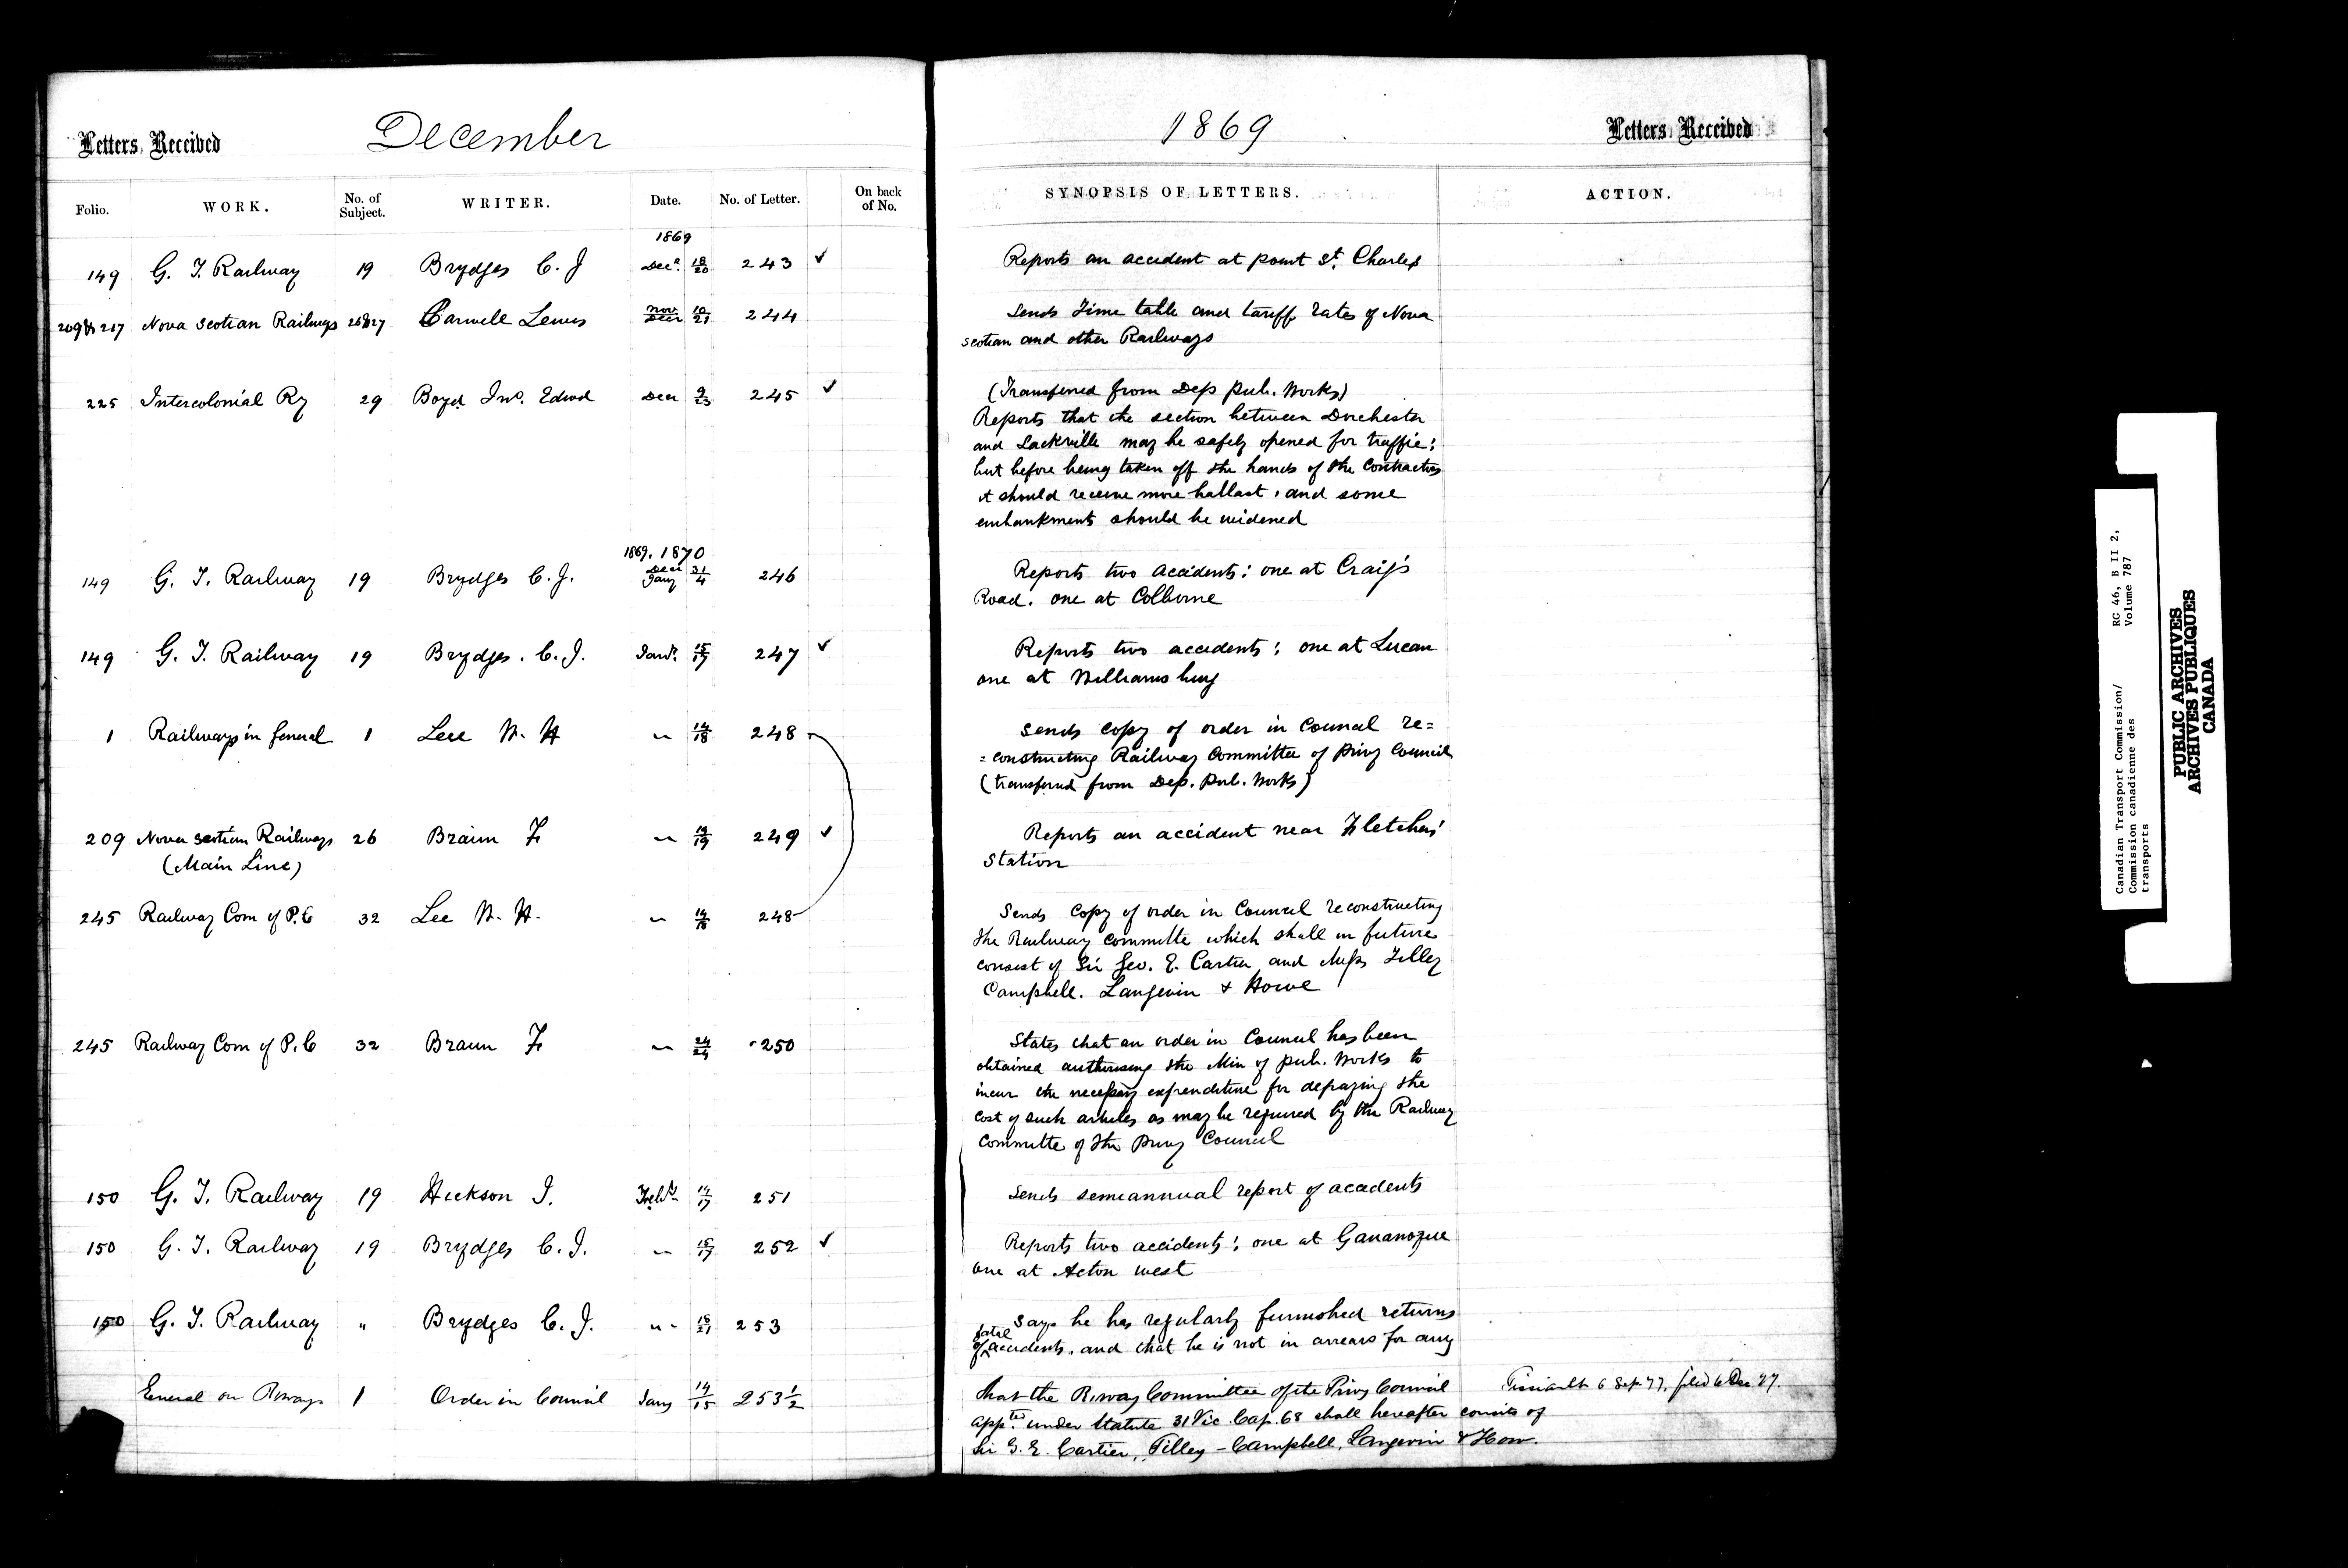 Letters Received December 1869 Letters Received
Folio. WORK. No. of Subject. WRITER. Date. No. of Letter. On back of No. SYNOPSIS OF LETTERS. ACTION.
1869
149 G. T. Railway 19 Brydges C. J Decr 18/20 243 ✓ Reports an accident at point St. Charles
209 & 217 Nova Scotian Railways 26&27 Carvell Lewis Nov 10 / Decr 21 244 Sends Time table and tariff rates of Nova
Scotian and other Railways
225 Intercolonial Ry 29 Boyd Jno. Edwd Decr 9/23 245 ✓ (Transferred from Dep Pub. Works)
Reports that the section between Dorchester
and Sackville may be safely opened for traffic;
but before being taken off the hands of the Contractors
it should receive more ballast, and some
embankments should be widened
1869. 1870
149 G. T. Railway 19 Brydges C. J. Decr 31 / Jany 4 246 Reports two accidents: one at Craig's
Road. one at Colborne
149 G. T. Railway 19 Brydges. C. J. Jany. 15/17 247 ✓ Reports two accidents; one at Lucan
one at Williamsburg
1 Railways in General 1 Lee W. H " 14/18 248 Sends copy of order in Council re=
=constructing Railway Committee of Privy Council
(transferred from Dep. Pub. Works)
209 Nova Scotian Railways 26 Braun F " 249 ✓ Reports an accident near Fletchers'
(Main Line) Station
245 Railway Com of P.C 32 Lee W. H. " 14/18 248 Sends Copy of order in Council reconstructing
the Railway Committe which shall in future
consist of Sir Geo. E. Cartier and Messrs Tilley
Campbell. Langevin & Howe
245 Railway Com of P. C 32 Braun F " 24/24 250 States that an order in Council has been
obtained authorising the Min of pub. Works to
incur the necessary expenditure for defraying the
cost of such articles as may be required by the Railway
Committe of the Privy Council
150 G. T. Railway 19 Hickson J. Feby 14/17 251 Sends semiannual report of accidents
150 G. T. Railway 19 Brydges C. J. " 15/17 252 ✓ Reports two accidents; one at Gananoque
one at Acton west
150 G. T. Railway " Brydges C. J. " 18/21 253 Says he has regularly furnished returns
of fatal accidents. and that he is not in arrears for any
General on Rways 1 Order in Council Jany 14/15 253½ that the Rway Committee of the Privy Council 6 Sep 77, filed 6 Dec 77.
appted under Statute 31 Vic. Cap. 68 shall hereafter consits of
Sir G. E. Cartier, Tilley - Campbell, Langevin & How.
Canadian Transport Commission/ RG 46, B II 2,
Commission canadienne des Volume 787
transports
PUBLIC ARCHIVES
ARCHIVES PUBLIQUES
CANADA